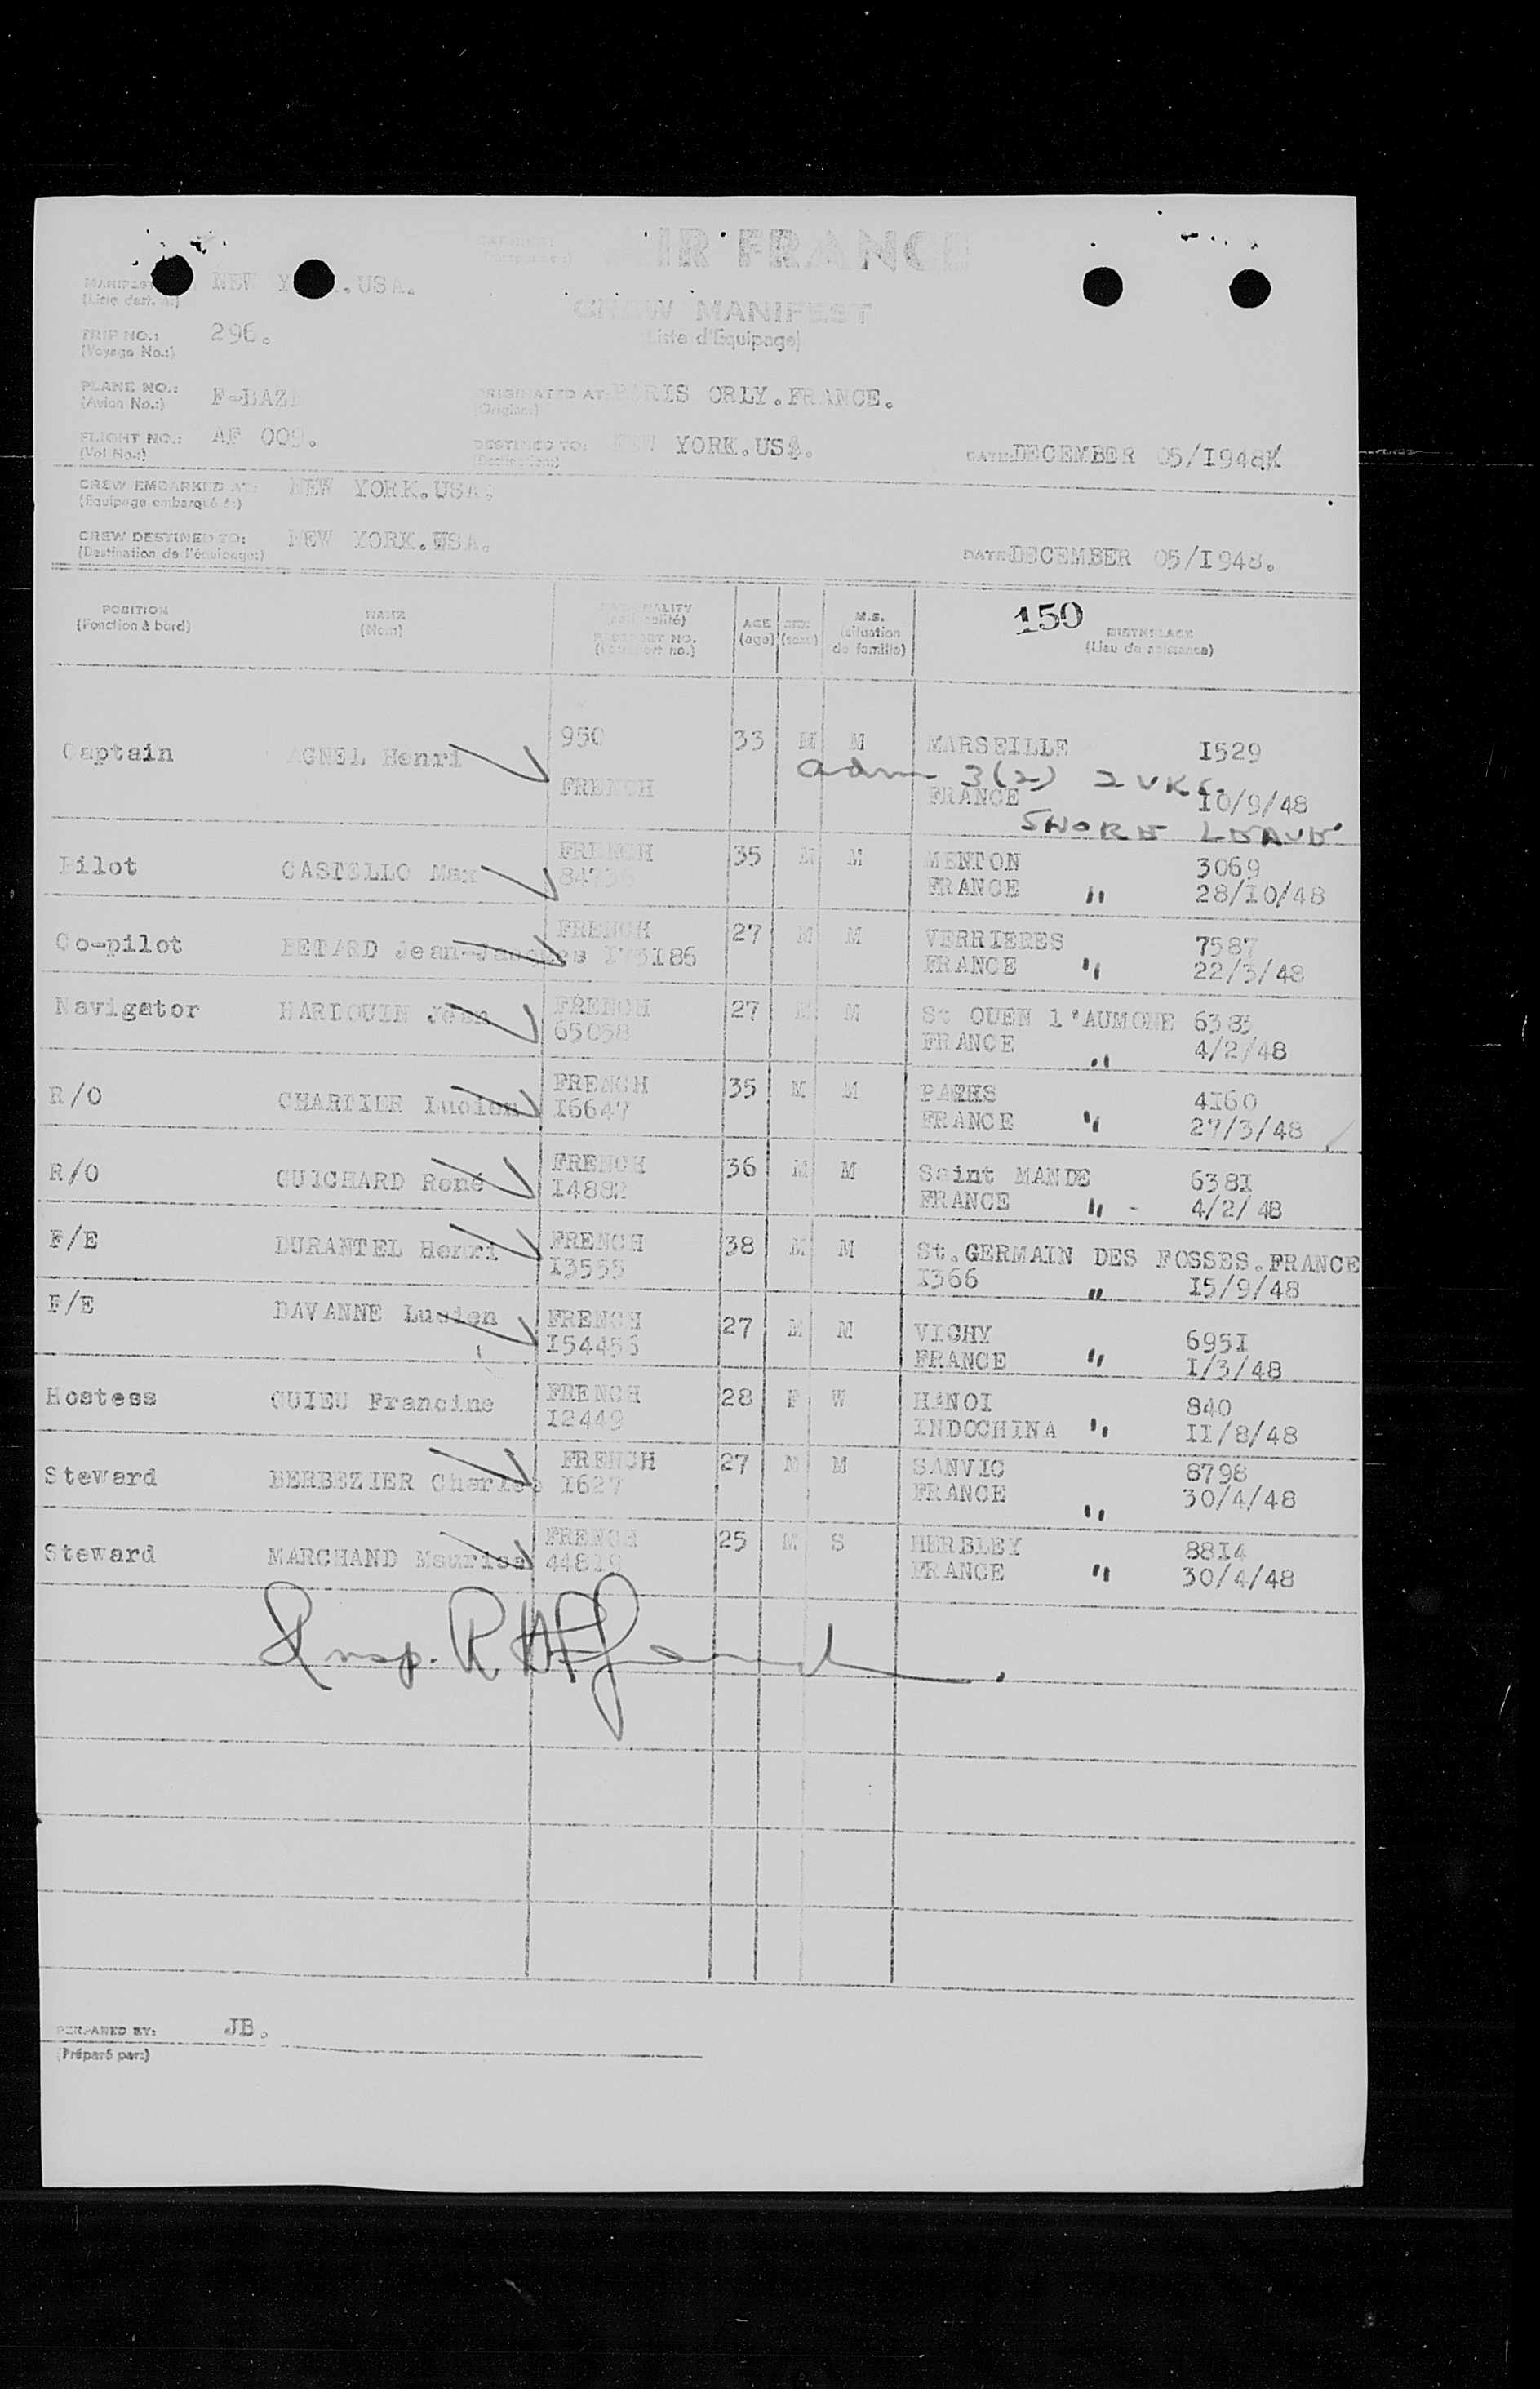 AIR FRANCE
CREW MANIFEST
(Liste d'Equipage)
NEW . USA.
TRIP NO.: 296.
(Voyage No.:)
PLANE NO.: F-BAZ
(Avion No.:)
ORIGINATED AT: PARIS ORLY.FRANCE.
(Origine:)
FLIGHT NO.: AF 009.
(Vol No.:)
DESTINED TO: NEW YORK.USA.
(Destination:)
DATE: DECEMBER 05/I948
CREW EMBARKED AT: NEW YORK.USA.
(Equipage embarqué à:)
CREW DESTINED TO: NEW YORK.USA.
(Destination de l'équipage:)
DATE: DECEMBER 05/I948.
POSITION NAME NATIONALITY AGE SEX M.S. 150 BIRTHPLACE
(Fonction à bord) (Nom) PASSPORT NO. (age) (sexe) (situation de famille) (Lieu de naissance)
Captain AGNEL Henri 950 33 M M MARSEILLE I529
adm 3(2)
FRENCH FRANCE I0/9/48
SHORE LEAVE
Pilot CASTELLO Max FRENCH 35 M M MENTON 3069
FRANCE " 28/I0/48
Co-pilot BETARD Jean-Jacques FRENCH 27 M M VERRIERES 7587
FRANCE " 22/3/48
Navigator HARDOUIN Jean FRENCH 27 M M St OUEN l'AUMONE 6383
65058 FRANCE " 4/2/48
R/O CHARTIER Lucien FRENCH 35 M M PARIS 4I60
I6647 FRANCE " 27/3/48
R/O GUICHARD René FRENCH 36 M M Saint MANDE 638I
I4882 FRANCE " 4/2/48
F/E DURANTEL Henri FRENCH 38 M M St.GERMAIN DES FOSSES.FRANCE
I366 " I5/9/48
F/E DAVANNE Lucien FRENCH 27 M M VICHY 695I
FRANCE " I/3/48
Hostess GUIEU Francine FRENCH 28 F W HANOI 840
I2449 INDOCHINA " II/8/48
Steward BERBEZIER Charles FRENCH 27 M M SANVIC 8798
I627 FRANCE " 30/4/48
Steward MARCHAND Maurice FRENCH 25 M S HERBLEY 88I4
44819 FRANCE " 30/4/48
Insp.
PREPARED BY: JB.
(Préparé par:)